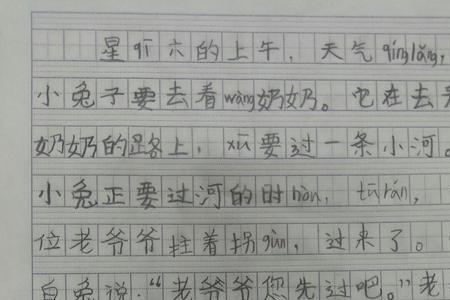 星qī六的上午，天气qínglǎng，
小兔子要去看wàng奶奶。它在去
奶奶的路上，xū要过一条小河。
小兔正要过河的时hòu，tū rán，
位老爷爷拄着拐gùn，过来了。
白兔说：“老爷爷您先过吧。”老